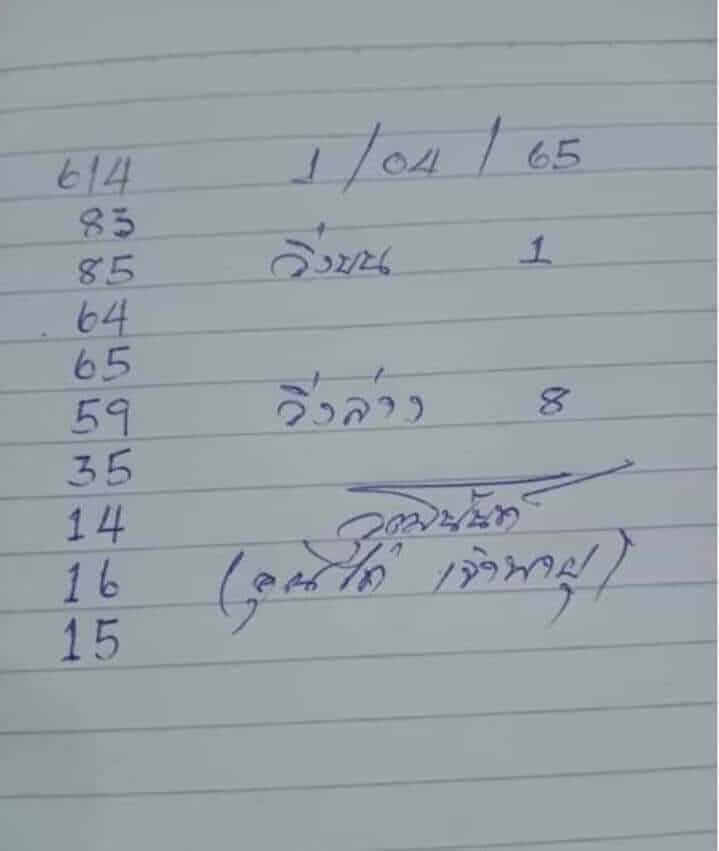 614 1/04/65
83
85 วิ่งบน 1
64
65
59 วิ่งล่าง 8
35
14
16 เจ้าพายุ
15